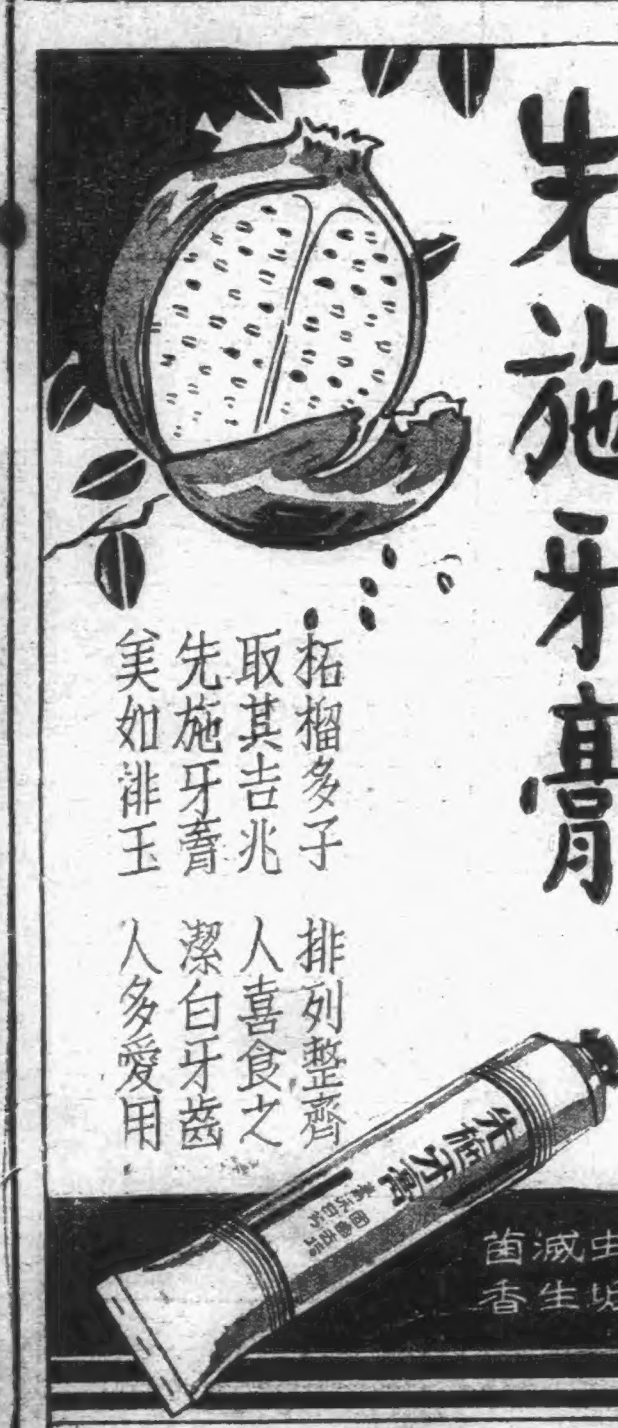 先施牙膏
拓榴多子 排列整齊
取其吉兆 人喜食之
先施牙膏 潔白牙齒
美如琲玉 人多愛用
先施牙膏
菌滅虫
香生垢